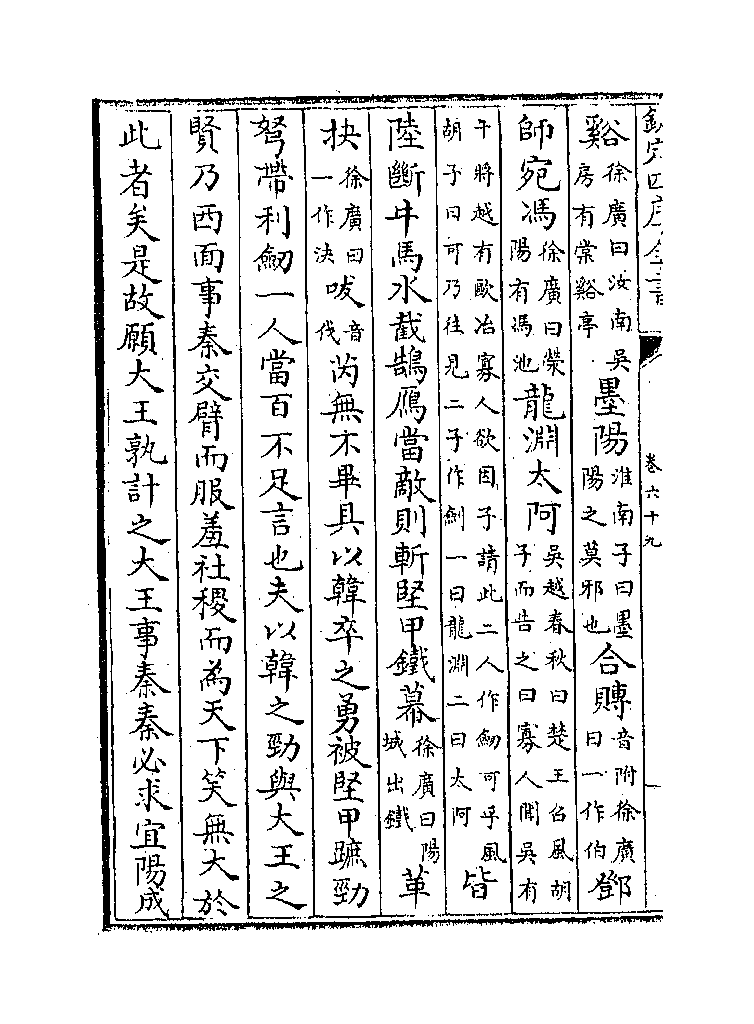 欽定四庫全書 卷六十九
谿徐廣曰汝南吳房有棠谿亭墨陽淮南子曰墨陽之莫邪也合賻音附徐廣曰一作伯鄧
師宛馮徐廣曰滎陽有馮池龍淵太阿吳越春秋曰楚王召風胡子而告之曰寡人聞吳有
干將越有歐冶寡人欲因子請此二人作劒可乎風胡子曰可乃往見二子作劒一曰龍淵二曰太阿皆
陸斷牛馬水截鵠鴈當敵則斬堅甲鐵幕徐廣曰陽城出鐵革
抉徐廣曰一作决㕹音伐芮無不畢具以韓卒之勇被堅甲蹠勁
弩帶利劒一人當百不足言也夫以韓之勁與大王之
賢乃西面事秦交臂而服羞社稷而為天下笑無大於
此者矣是故願大王孰計之大王事秦秦必求宜陽成